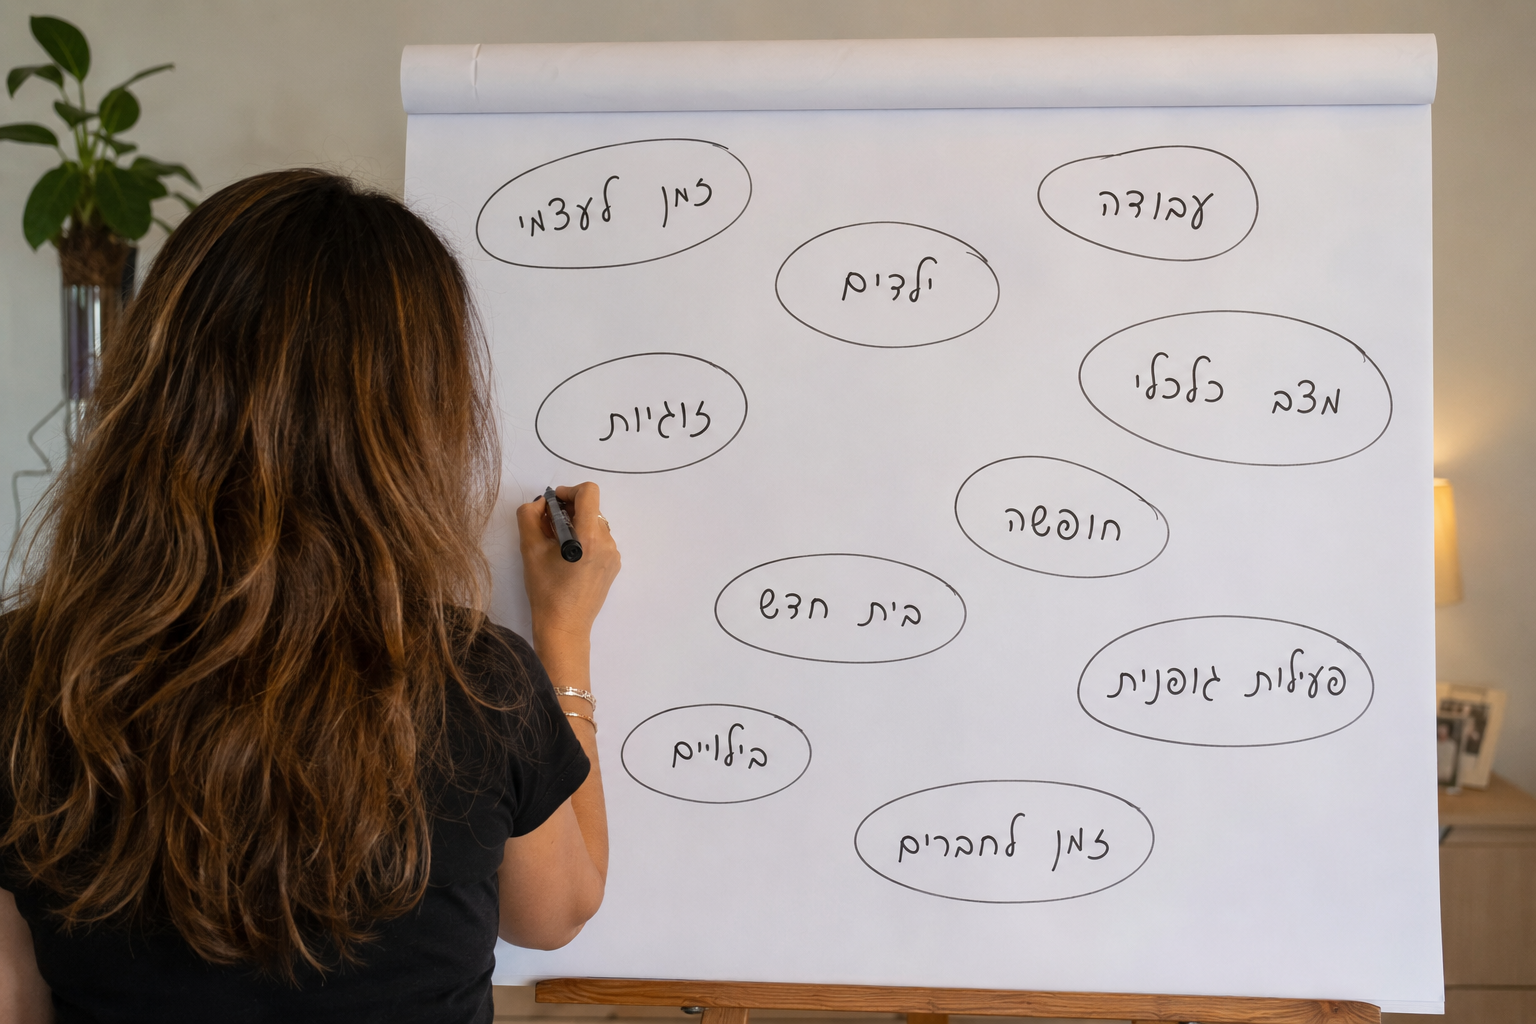 עבודה
זמן לעצמי
ילדים
מצב כלכלי
זוגיות
חופשה
בית חדש
פעילות גופנית
בילויים
זמן לחברים